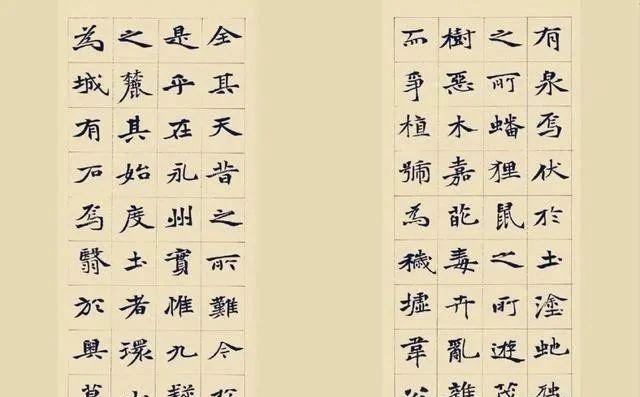 全其天昔之所難今於
是乎在永州實惟九疑
之麓其始度土者環山
為城有石焉翳於奧草
有泉焉伏於土塗虵
之所蟠狸鼠之所遊茂
樹惡木嘉葩毒卉亂雜
而爭植號為穢墟韋公